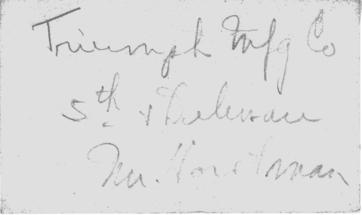 Triumph Mfg Co
5th &
Mr. Horstman